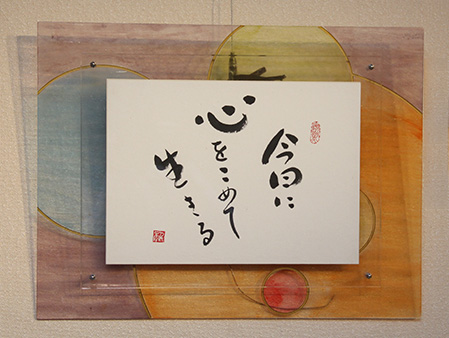 今日に
心をこめて
生きる